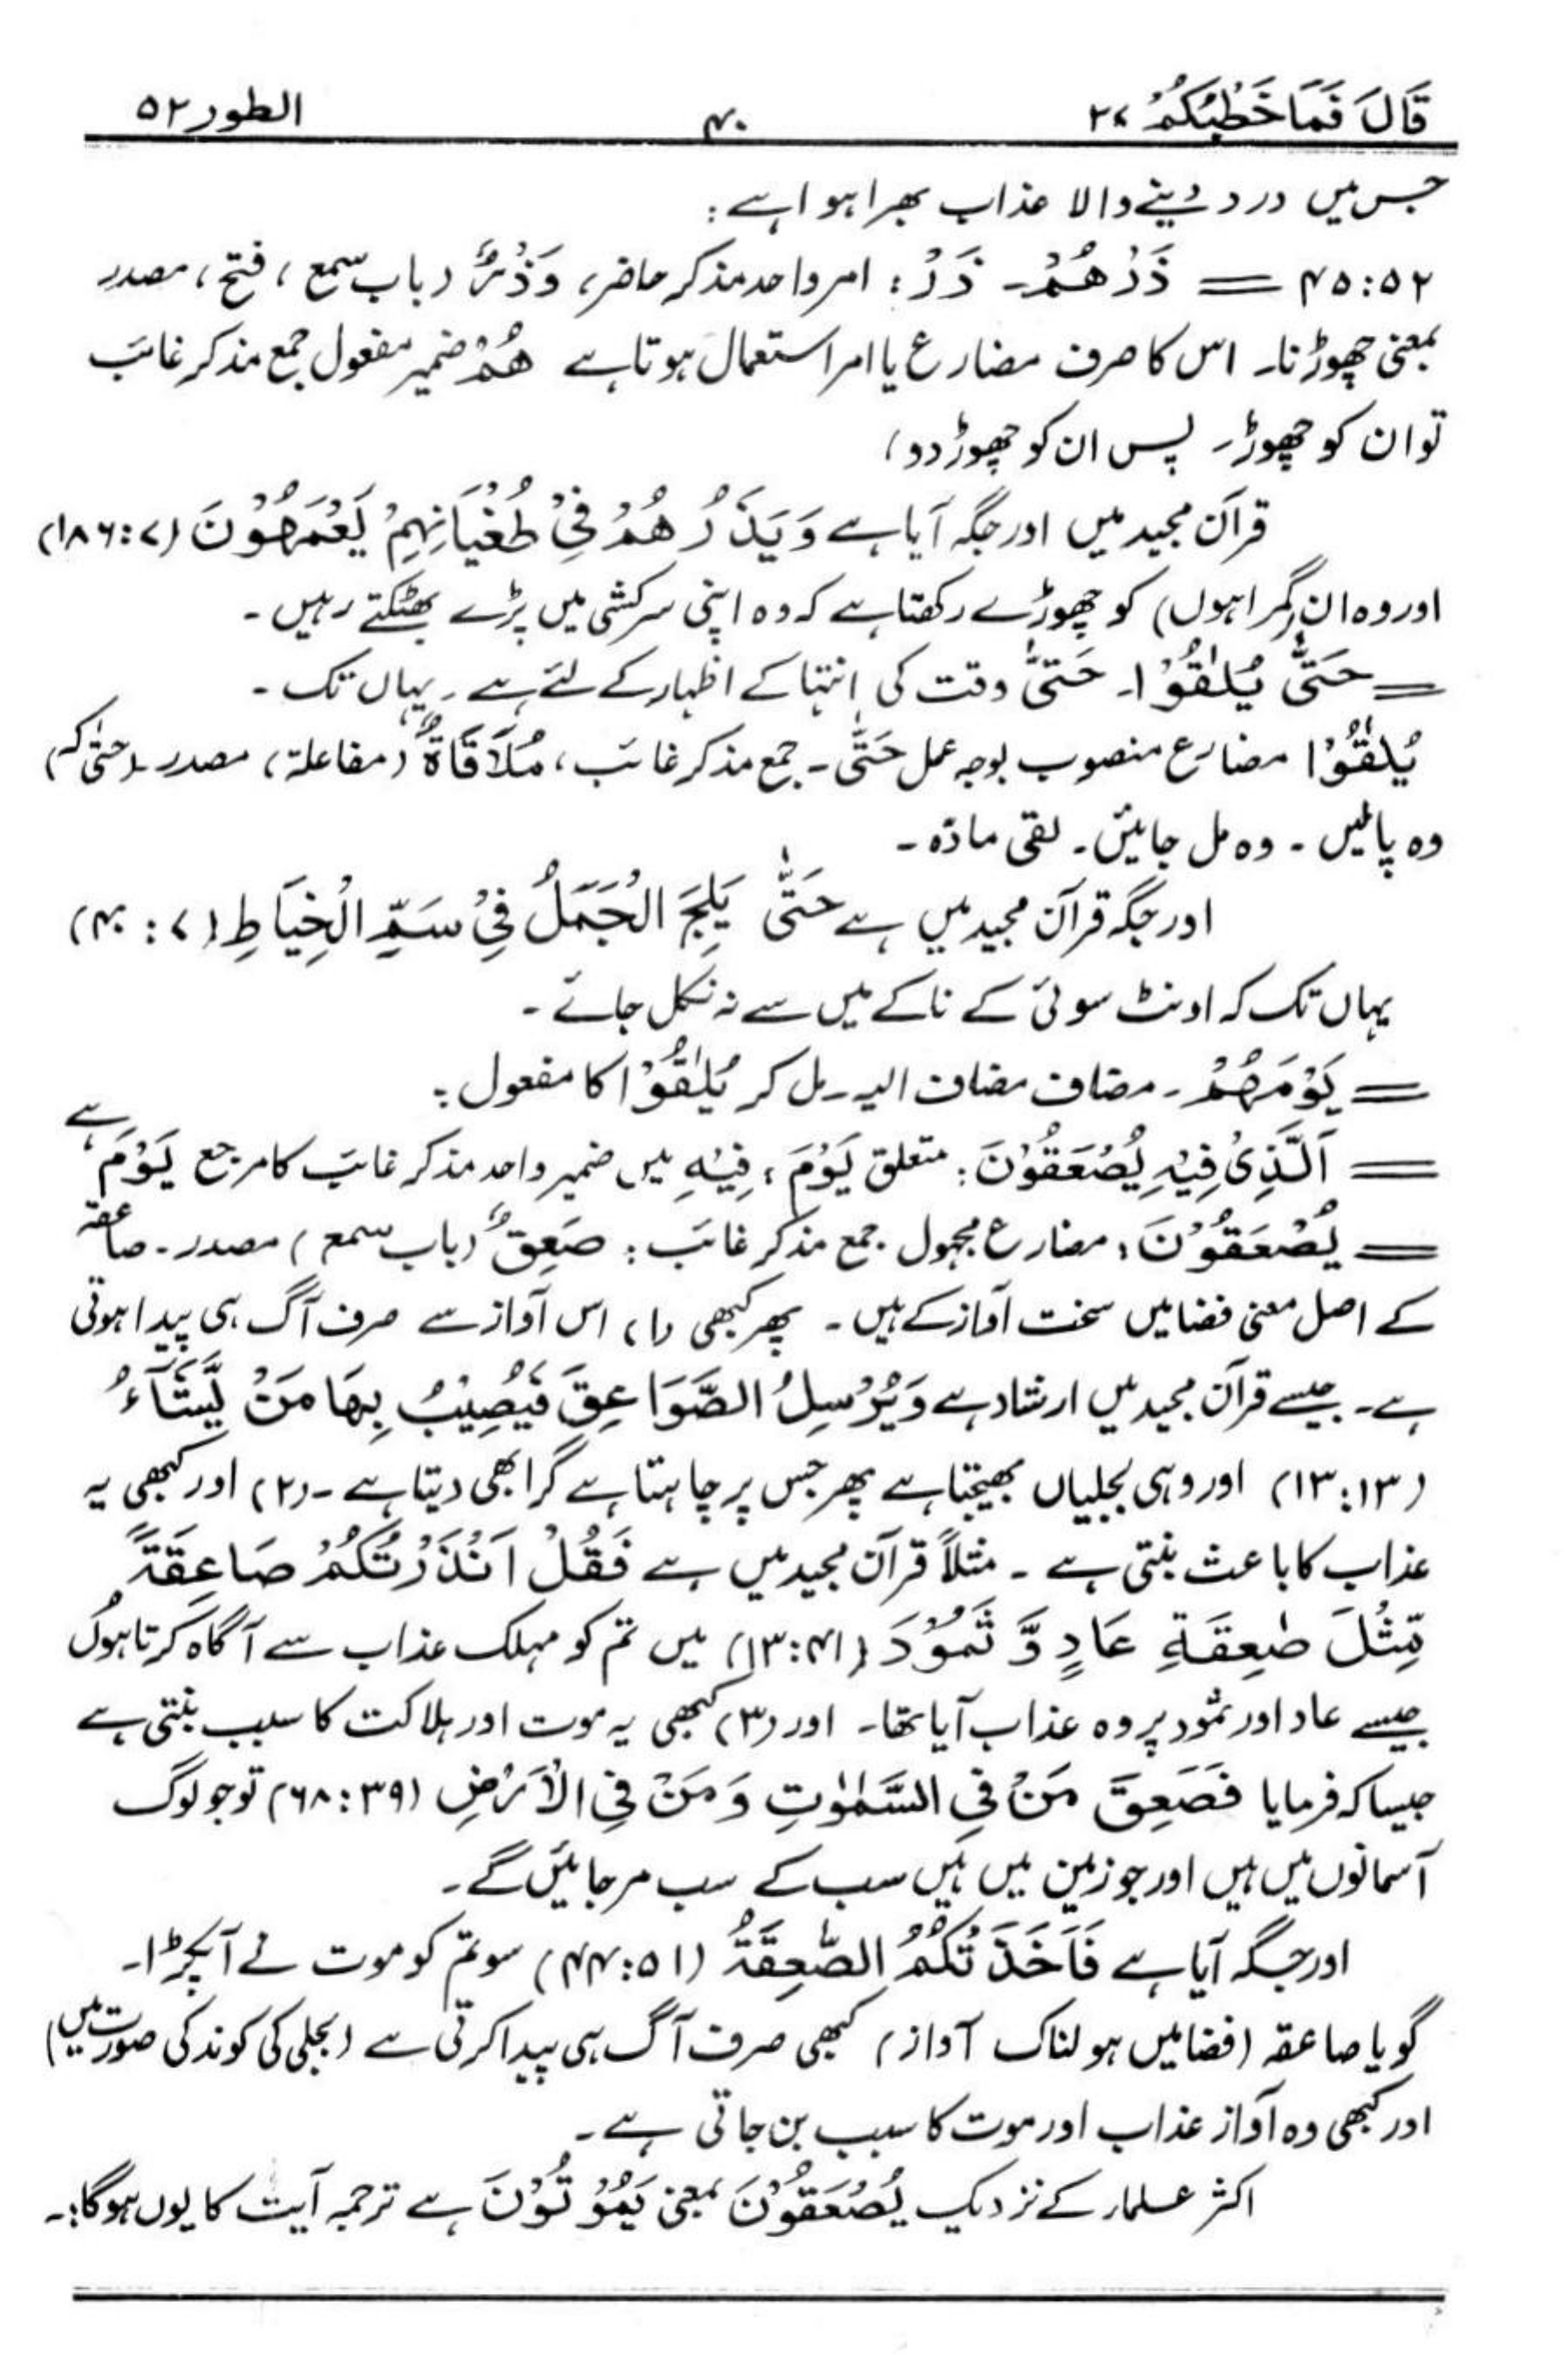 قَالَ فَمَا خَطْبُكُمْ ۲۷ ۴۰ الطور ۵۲
جس میں درد دینے والا عذاب بھرا ہوا ہے :
۵۲:۴۵ = ذَرْهُمْ۔ ذَرْ : امر واحد مذکر حاضر، وَذْرٌ (باب سمع ، فتح ، مصدر
بمعنی چھوڑنا۔ اس کا صرف مضارع یا امر استعمال ہوتا ہے هُمْ ضمیر مفعول جمع مذکر غائب
تو ان کو چھوڑ۔ پس ان کو چھوڑ دو)
قرآن مجید میں اور جگہ آیا ہے وَيَذَرُهُمْ فِيْ طُغْيَانِهِمْ يَعْمَهُوْنَ (۷:۱۸۶)
اور وہ ان (گمراہوں) کو چھوڑے رکھتا ہے کہ وہ اپنی سرکشی میں پڑے بھٹکتے رہیں ۔
= حَتّٰى يُلٰقُوْا۔ حَتّٰى وقت کی انتہا کے اظہار کے لئے ہے۔ یہاں تک ۔
يُلٰقُوْا مضارع منصوب بوجہ عمل حَتّٰى۔ جمع مذکر غائب، مُلَاقَاةٌ (مفاعلۃ) مصدر۔ (حتیٰ کہ)
وہ پالیں ۔ وہ مل جائیں۔ لقی مادّہ ۔
اور جگہ قرآن مجید میں ہے حَتّٰى يَلِجَ الْجَمَلُ فِيْ سَمِّ الْخِيَاطِ (۷ : ۴۰)
یہاں تک کہ اونٹ سوئی کے ناکے میں سے نہ نکل جائے ۔
= يَوْمَهُمْ۔ مضاف مضاف الیہ۔ مل کر يُلٰقُوْا کا مفعول :
= اَلَّذِيْ فِيْهِ يُصْعَقُوْنَ : متعلق يَوْمَ ، فِيْهِ میں ضمیر واحد مذکر غائب کا مرجع يَوْمَ ہے
= يُصْعَقُوْنَ : مضارع مجہول جمع مذکر غائب : صَعِقٌ (باب سمع) مصدر۔ صاعقہ
کے اصل معنی فضا میں سخت آواز کے ہیں ۔ پھر کبھی (۱) اس آواز سے صرف آگ ہی پیدا ہوتی
ہے۔ جیسے قرآن مجید میں ارشاد ہے وَيُرْسِلُ الصَّوَاعِقَ فَيُصِيْبُ بِهَا مَنْ يَّشَآءُ
(۱۳:۱۳) اور وہی بجلیاں بھیجتا ہے پھر جس پر چاہتا ہے گرا بھی دیتا ہے ۔ (۲) اور کبھی یہ
عذاب کا باعث بنتی ہے ۔ مثلاً قرآن مجید میں ہے فَقُلْ اَنْذَرْتُكُمْ صَاعِقَةً
مِّثْلَ صٰعِقَةِ عَادٍ وَّ ثَمُوْدَ (۴۱:۱۳) میں تم کو مہلک عذاب سے آگاہ کرتا ہوں
جیسے عاد اور ثمود پر وہ عذاب آیا تھا۔ اور (۳) کبھی یہ موت اور ہلاکت کا سبب بنتی ہے
جیسا کہ فرمایا فَصَعِقَ مَنْ فِي السَّمٰوٰتِ وَ مَنْ فِي الْاَرْضِ (۳۹:۶۸) تو جو لوگ
آسمانوں میں ہیں اور جو زمین میں ہیں سب کے سب مر جائیں گے ۔
اور جگہ آیا ہے فَاَخَذَتْكُمُ الصّٰعِقَةُ (۵۱:۴۴) سو تم کو موت نے آ پکڑا۔
گویا صاعقہ (فضا میں ہولناک آواز) کبھی صرف آگ ہی پیدا کرتی ہے (بجلی کی کوند کی صورت میں)
اور کبھی وہ آواز عذاب اور موت کا سبب بن جاتی ہے ۔
اکثر علماء کے نزدیک يُصْعَقُوْنَ بمعنی يَمُوْتُوْنَ ہے ترجمہ آیت کا یوں ہوگا :۔